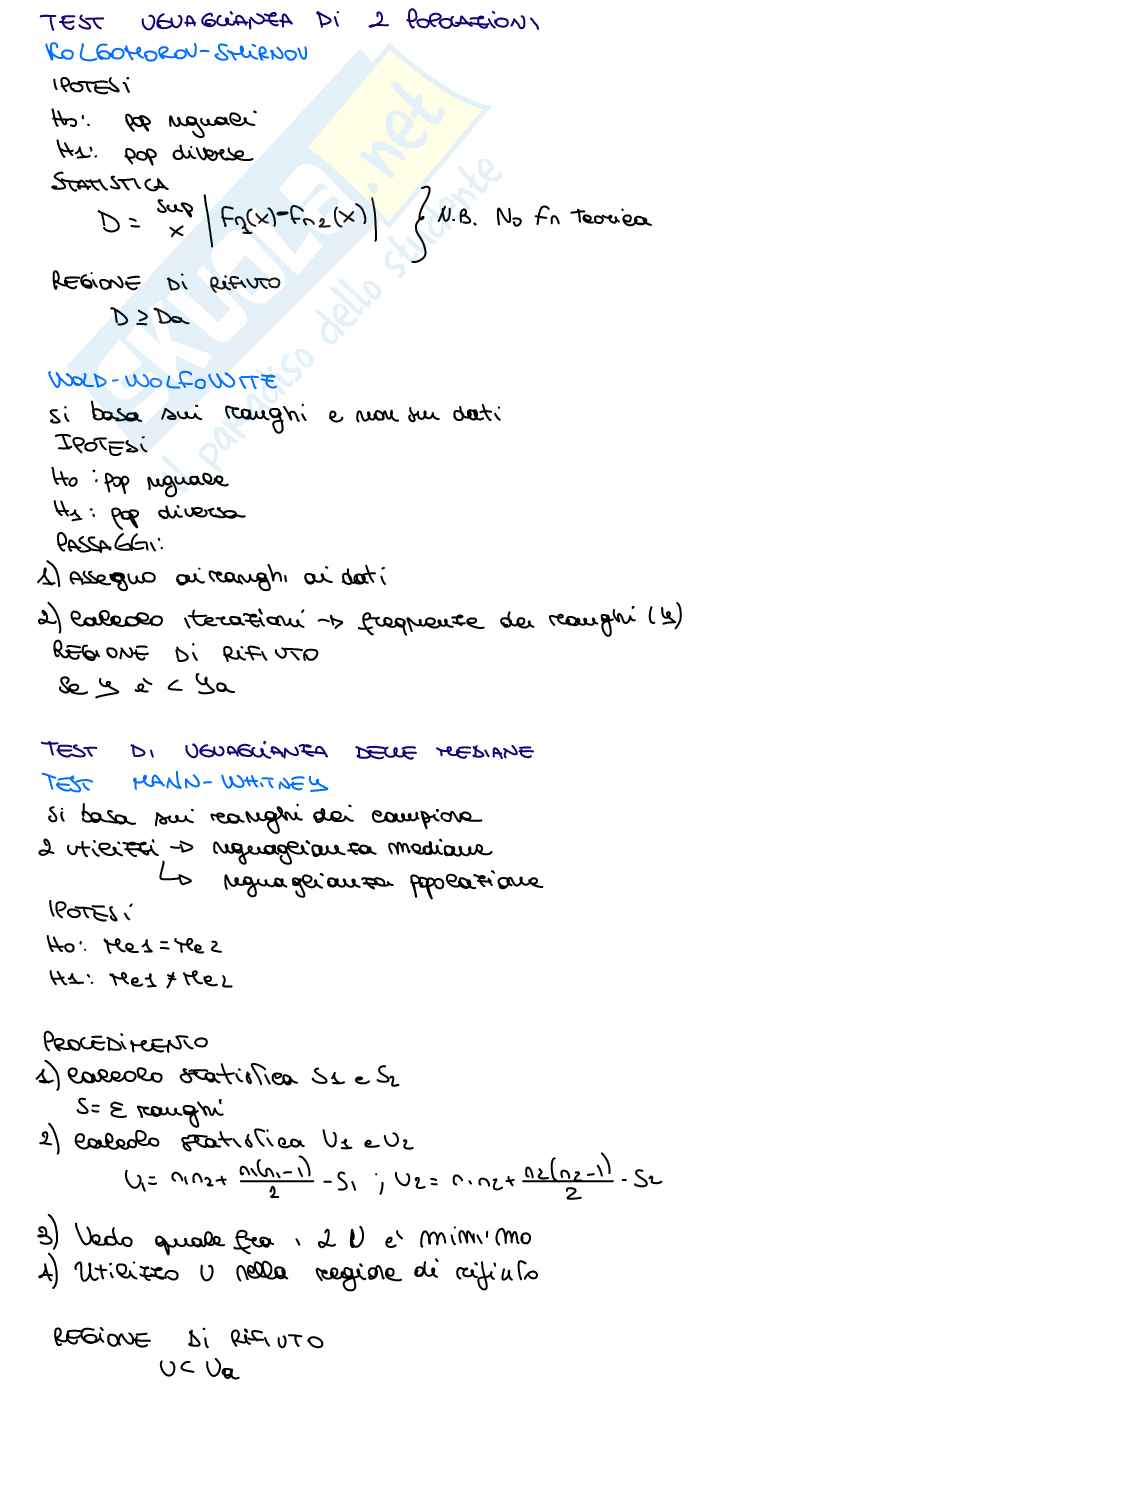 TEST UGUAGLIANZA DI 2 POPOLAZIONI
KOLGOMOROV-SMIRNOV
IPOTESI
H0: pop uguali
H1: pop diverse
STATISTICA
D = sup x | Fn1(x) - Fn2(x) | } N.B. No Fn Teorica
REGIONE DI RIFIUTO
D ≥ Da
WOLD-WOLFOWITZ
Si basa sui ranghi e non sui dati
IPOTESI
H0 : pop uguale
H1 : pop diversa
PASSAGGI:
1) Assegno ai ranghi ai dati
2) Calcolo iterazioni → frequenze dei ranghi (y)
REGIONE DI RIFIUTO
Se y è < ya
TEST DI UGUAGLIANZA DELLE MEDIANE
TEST MANN-WHITNEY
Si basa sui ranghi dei campione
2 utilizzi → uguaglianza mediane
↳ uguaglianza popolazione
IPOTESI
H0: Me1 = Me2
H1: Me1 ≠ Me2
PROCEDIMENTO
1) Calcolo statistica S1 e S2
S = Σ ranghi
2) Calcolo statistica U1 e U2
U1 = n1n2 + n1(n1-1)/2 - S1 ; U2 = n1n2 + n2(n2-1)/2 - S2
3) Vedo quale fra i 2 U è minimo
4) Utilizzo U nella regione di rifiuto
REGIONE DI RIFIUTO
U < Ua
SKUOLA.net
il paradiso dello studente